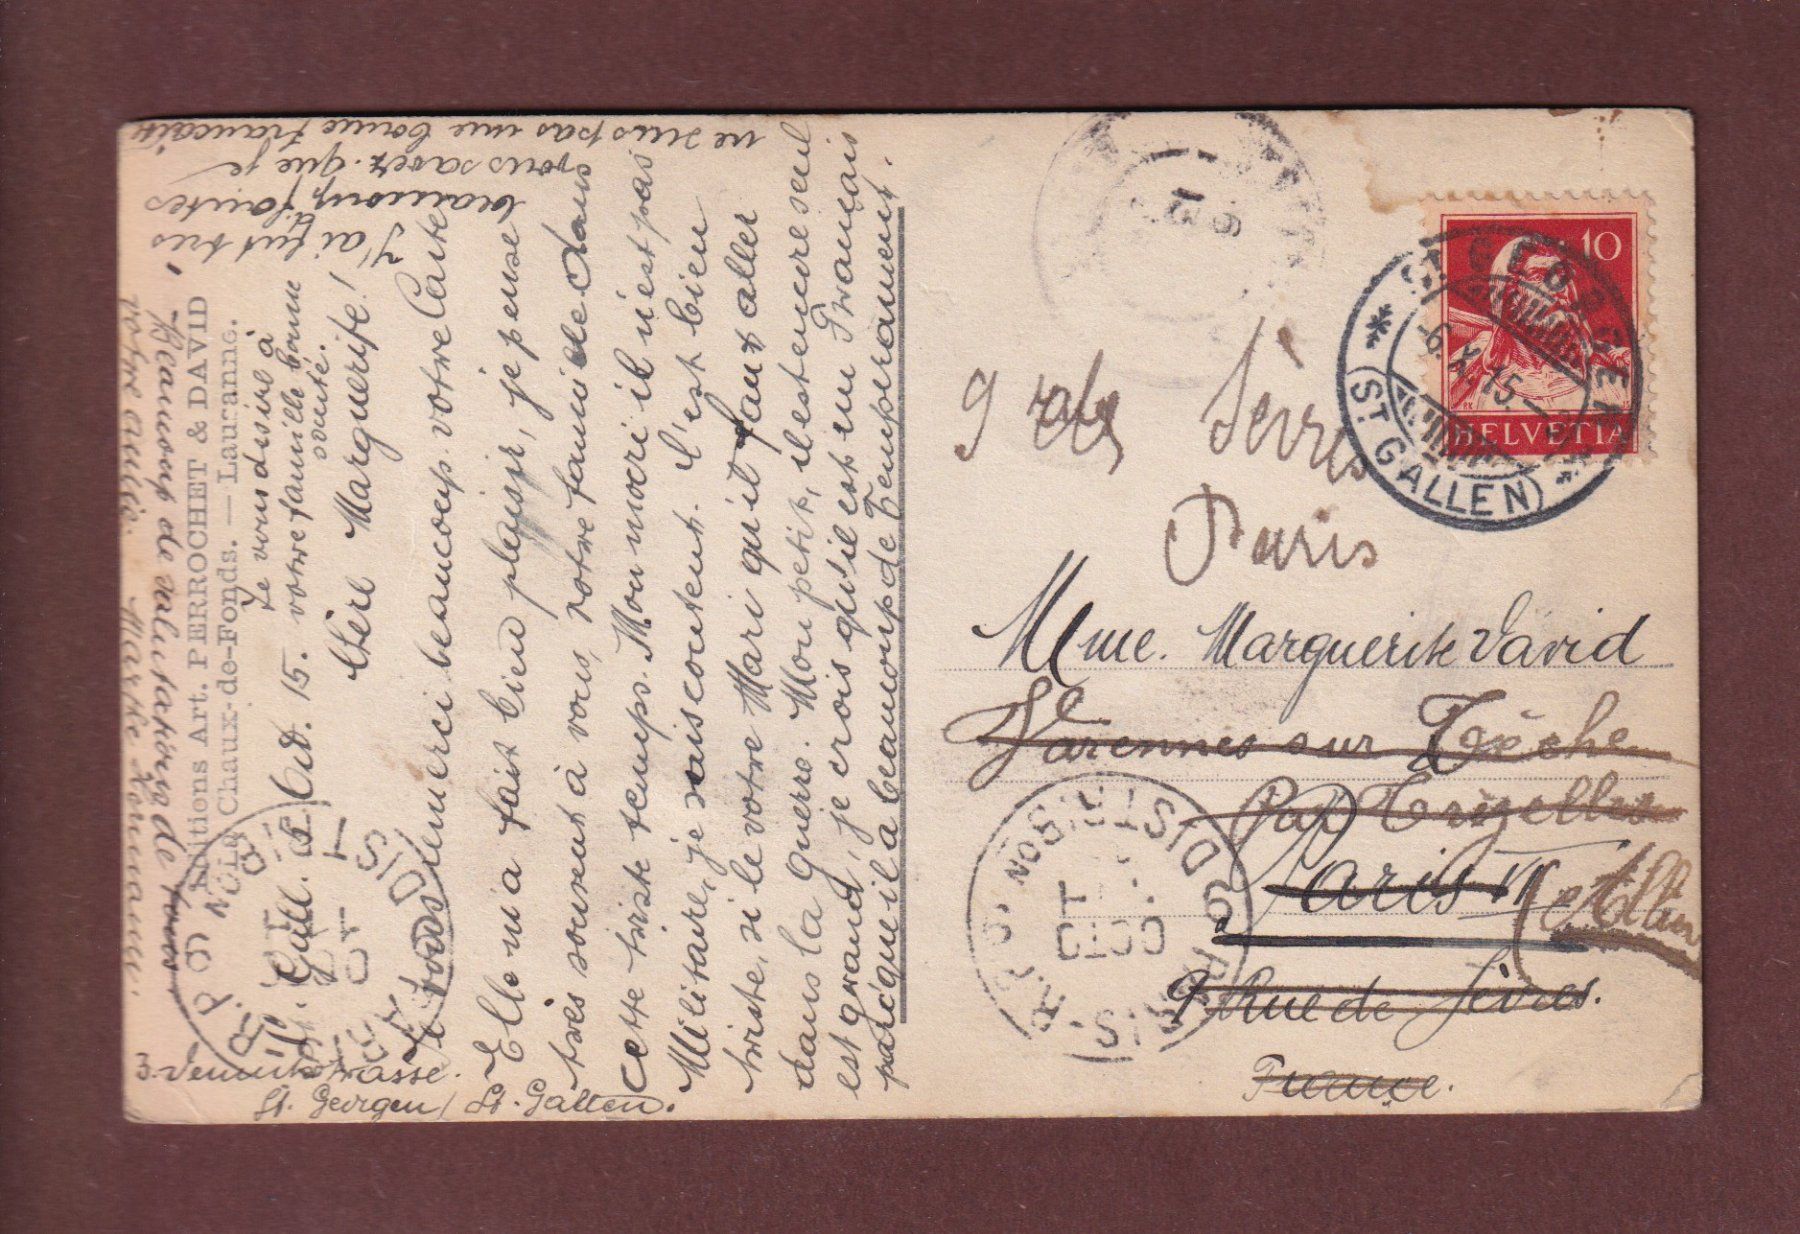 St. Gall. 5. Oct. 15.
Chère Marguerite!
Je vous remerci beaucoup votre Carte
Elle m'a fait bien plaisir, je pense
très souvent à vous, votre famille dans
cette triste temps. Mon mari il n'est pas
Militaire, je suis content. C'est bien
triste, si le votre Mari qu'il faut aller
dans la Guerre. Mon petit, il est encore seul
est grand, je crois qu'il est un Français
parcequ'il a beaucoup de Temperament.
J'ai fait très
beaucoup fautes
vous savez que je
ne suis pas une bonne francais
Je vous disire à
votre famille bonne
sante.
Beaucoup de salutations de
votre amie. Marthe
strasse.
St. Georgen / St. Gallen.
Editions Art. PERROCHET & DAVID
La Chaux-de-Fonds. — Lausanne.
9 rue Sèvres
Paris
Mme. Marguerite David
Varennes sur Tèche
Par Trezelles
Paris
(Allier
9 Rue de Sèvres.
France.
HELVETIA
10
ST. GEORGEN
-6.X.15.-
(ST GALLEN)
DISTRISON
OCTO
PARIS